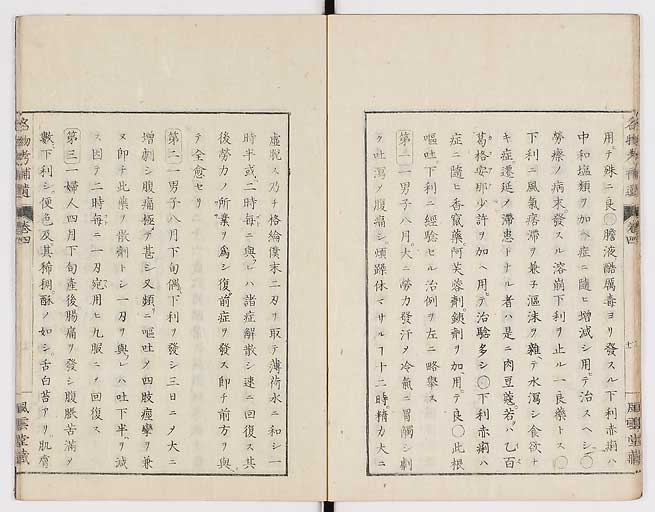 用テ殊ニ良○膽液酷厲毒ヨリ發スル下利赤痢ハ
中和塩類ヲ加ヘ症ニ隨ヒ增減シ用テ治スヘシ○
勞瘵ノ病末發スル溶崩下利ヲ止ル一良藥トス○
下利ニ風氣痞滯ヲ兼子漚沫ヲ雜ヘテ水瀉シ食欲ナ
キ症遷延ノ滯患トナル者ハ是ニ肉豆蔲若クハ乙百
葛格安那少許ヲ加ヘ用テ治驗多シ○下利赤痢ハ
症ニ隨ヒ香竄藥阿芙蓉劑銕劑ヲ加用テ良○此根
嘔吐下利ニ經驗セル治例ヲ左ニ略擧ス
第一一男子八月大ニ勞力發汗ヲ冷氣ニ冒觸シ劇
ク吐瀉ヲ腹痛シ煩躁体マサル十二時精力大ニ
虛脫ス乃チ格綸僕末二刃ヲ取テ薄荷水ニ和シ一
時半或ハ二時每ニ與レハ諸症解散シ速ニ回復ス其
後勞力ノ所業ヲ爲シ復前症ヲ發ス卽チ前方ヲ與
テ全愈セリ
第二一男子八月下旬偶下利ヲ發シ三日ニメ大ニ
增劇シ腹痛極テ甚シ又頻ニ嘔吐ノ四肢瘦攣ヲ兼
ヌ卽チ此藥ヲ散劑トシ一刃ヲ與レハ吐下半ヲ減
ス因テ二時每ニ一刃宛用ヒ九服ニメ回復ス
第三一婦人四月下旬產後腸痛ヲ發シ腹脹苦滿メ
數下利シ便色及其稀稠酥ノ如シ舌白苔アリ肌膚
名物考補遺
卷四
風雲堂藏